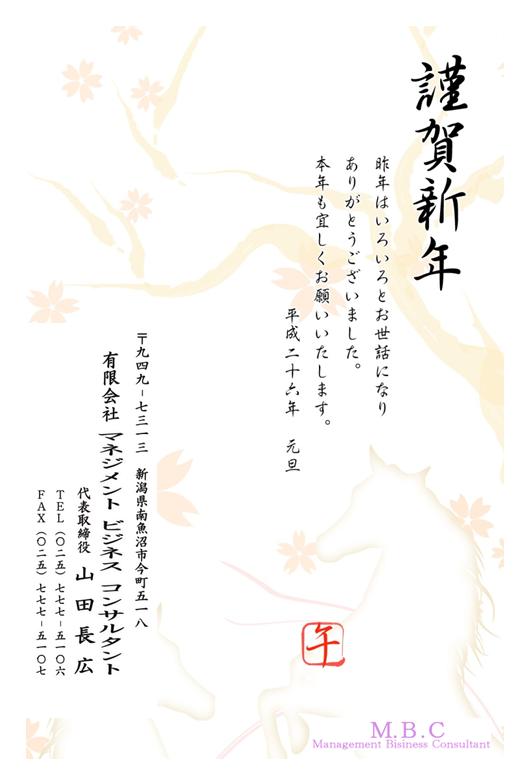 謹賀新年
昨年はいろいろとお世話になり
ありがとうございました。
本年も宜しくお願いいたします。
平成二十六年 元旦
〒九四九-七三一三 新潟県南魚沼市今町五一八
有限会社 マネジメント ビジネス コンサルタント
代表取締役 山田長広
TEL(〇二五)七七七-五一〇六
FAX(〇二五)七七七-五一〇七
午
M.B.C
Management Bisiness Consultant